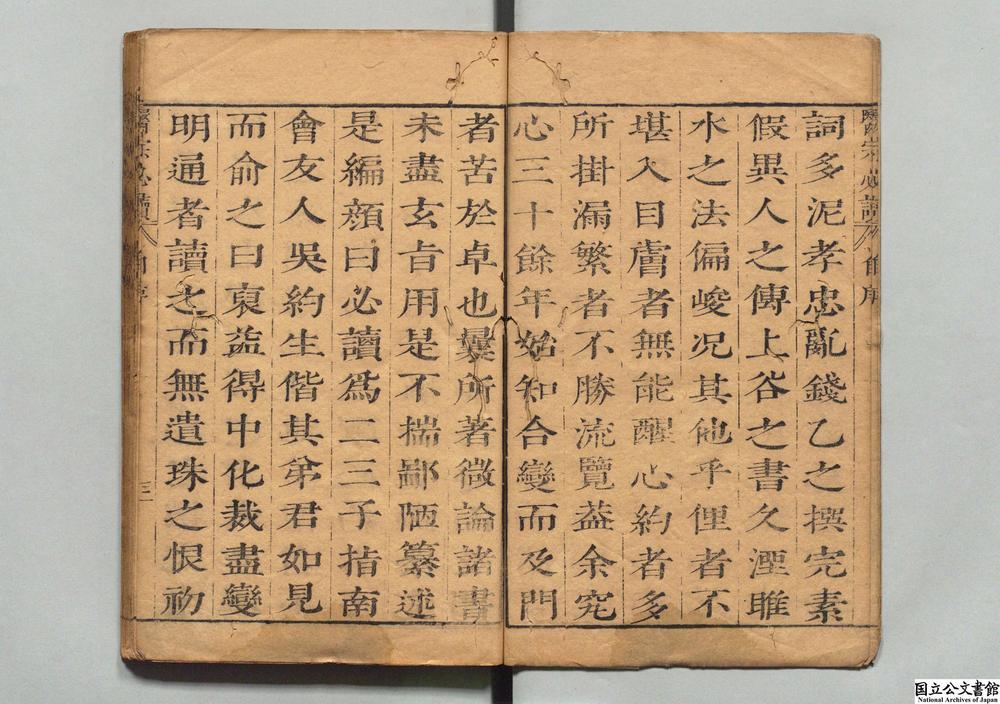 詞多泥孝忠亂錢乙之撰完素
假異人之傳上谷之書久湮睢
水之法偏峻况其他乎俚者不
堪入目膚者無能醒心約者多
所掛漏繁者不勝流覽葢余究
心三十餘年始知合變而及門
者苦於卓也曩所著微論諸書
未盡玄㫖用是不揣鄙陋纂述
是編顔曰必讀爲二三子指南
會友人吳約生偕其弟君如見
而俞之曰裒益得中化裁盡變
明通者讀之而無遺珠之恨初
醫宗必讀
三
国立公文書館
National Archives of Japan